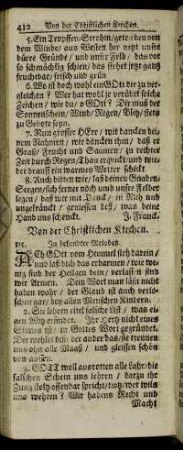 412 Von der Christlichen Kirchen.
5. Ein Tropffen/ Strohm/ getrieben von
dem Winde/ aus Westen her netzt unsre
dürre Gründe/ und unser Feld/ das vor
so schmachtig schien/ das stehet jetzt gantz
fruchtbar/ frisch und grün.
6. Wo ist doch wohl ein Gott die zu ver-
gleichen? Wer hat wohl je verübet solche
Zeichen/ wie du/ o Gott? Dir muß der
Sonnenschein/ Wind/ Regen/ Blitz/ stets
zu Gebote seyn.
7. Nun grosser HErr/ wir dancken dei-
nem Nahmen/ wir dancken ihm/ daß er
Graß/ Frucht und Saamen/ zu rechter
Zeit durch Regen/ Thau erquickt/ und wie-
der drauff ein warmes Wetter schickt.
8. Auch bitten wir/ laß deinen Gnaden-
Seegen/ sich ferner noch und unsre Felder
legen/ daß wir mit Danck/ in Ruh und
ungekränckt/ geniessen deß/ was deine
Hand uns schenckt. J. Franck.
Von der Christlichen Kirchen.
In bekandter Melodey.
ACh GOtt vom Himmel sieh darein/
und laß dich das erbarmen/ wie we-
nig sind der Heilgen dein/ verlassen sind
wir Armen. Dein Wort man läßt nicht
haben wahr/ der Glaub ist auch verlo-
schen gar/ bey allen Menschen Kindern.
2. Sie lehren eitel falsche List/ was ei-
gen Witz erfindet. Ihr Hertz nicht eines
Sinnes ist/ in Gottes Wort gegründet.
Der wehlet diß/ der ander das/ sie trennen
uns ohn alle Maaß/ und gleissen schön
von aussen.
3. GOTT woll ausrotten alle Lahr/ die
falschen Schein uns lehren/ darzu ihr
Zung stoltz offenbar spricht/ trotz/ wer wils
uns wehren? Wir habens Recht und
Macht